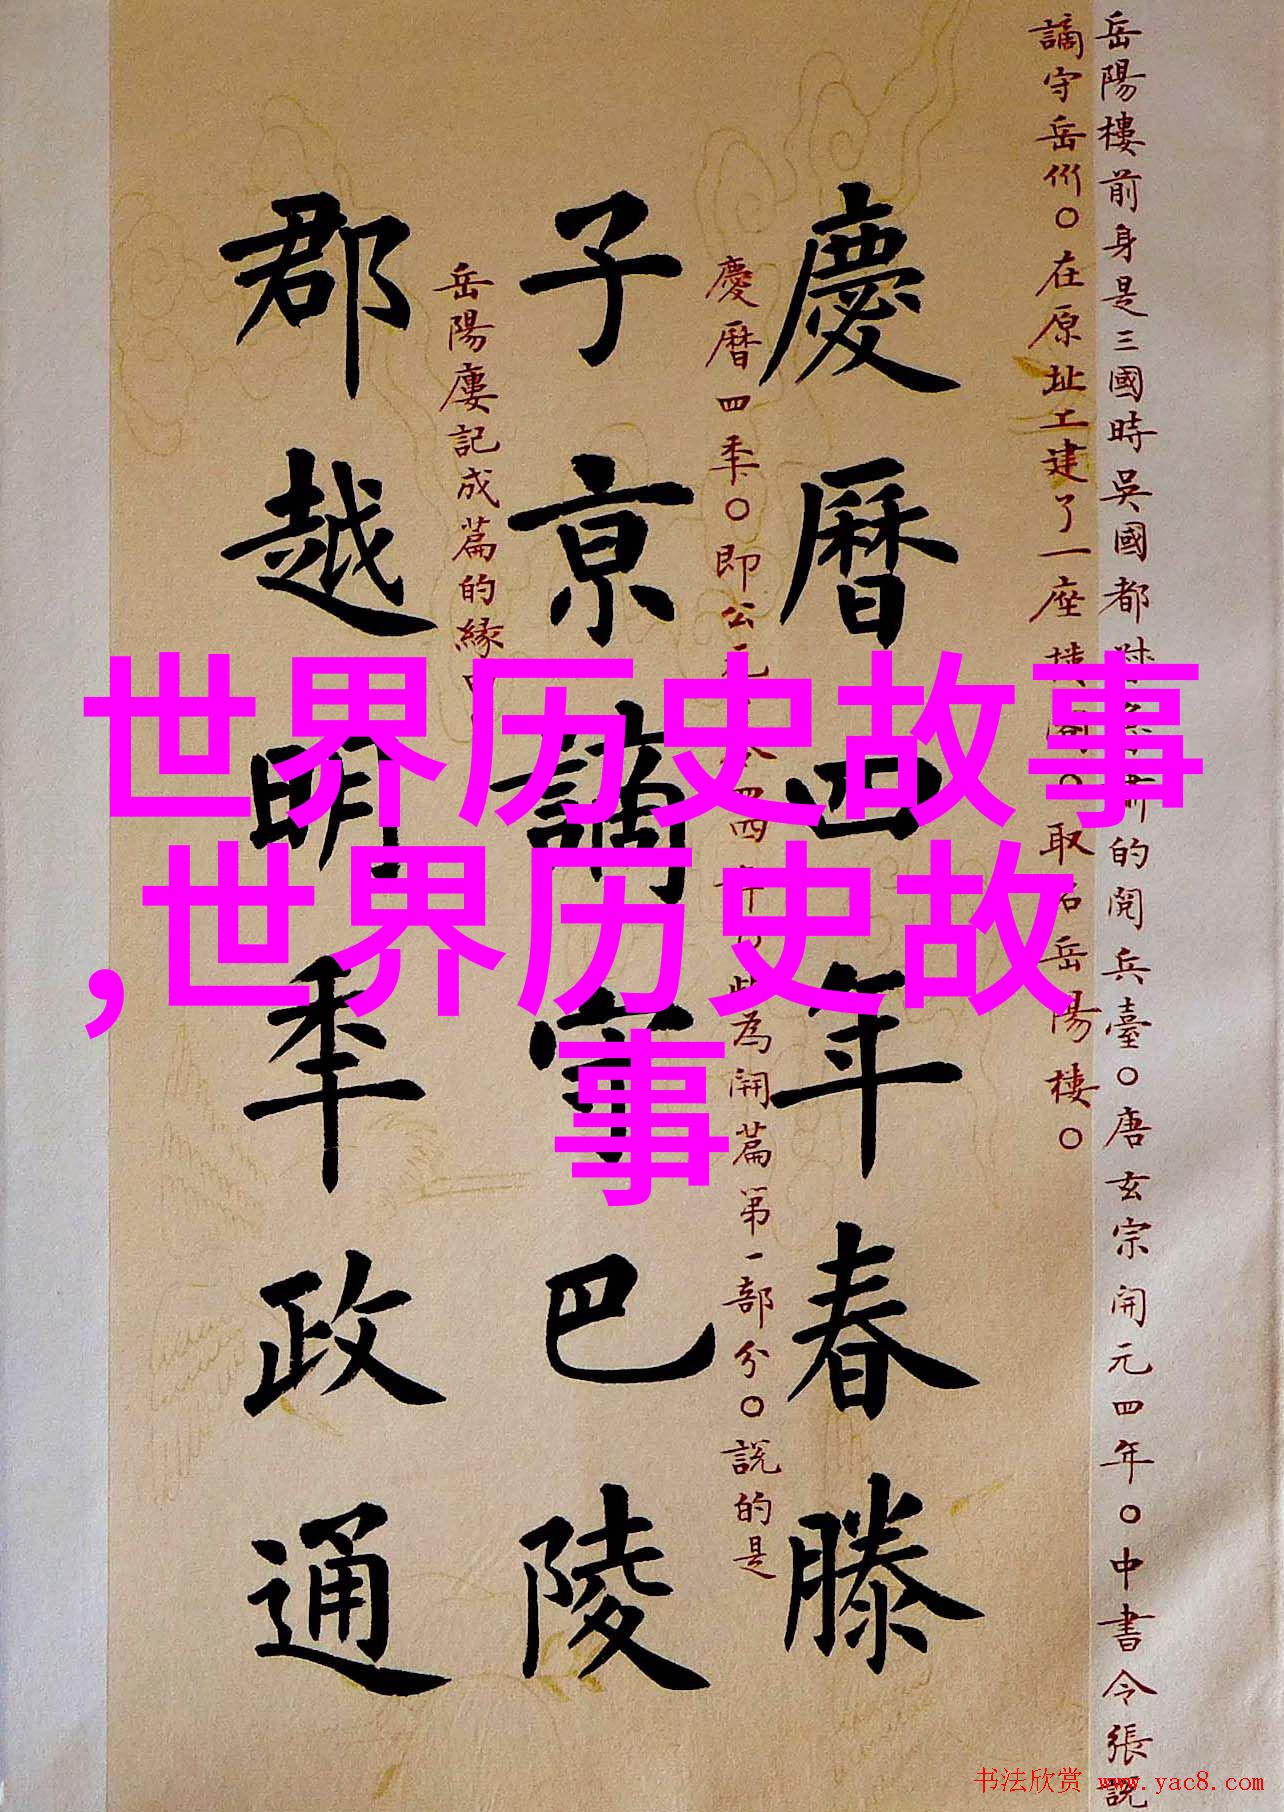 岳陽樓前身是三國時吳國都 的閱兵臺○唐玄宗開元四年○中書令張說
謫守岳州○在原址工建了一座 取名岳陽樓○
慶曆四年春滕
慶曆四年○即公元 四四年 此為開篇第一部分○說的是
子京謫守巴陵
岳陽廔記成篇的緣
郡越明年政通
世界历史故事
,世界历史故
事
书法欣赏 www.yac8.com